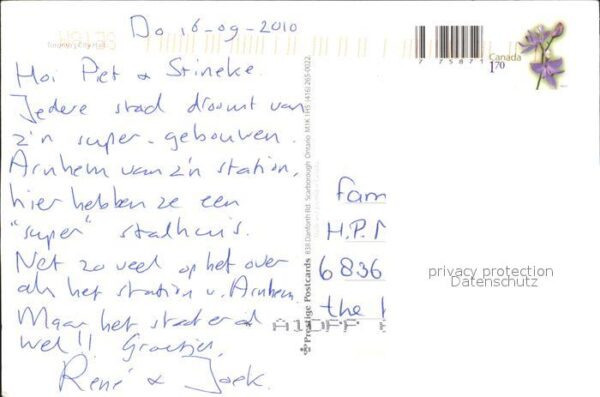 Do 16-09-2010
Hoi Piet & Stineke.
Iedere stad droomt van
z'n super-gebouwen.
Arnhem van z'n station,
hier hebben ze een
"super" stadhuis.
Net zo veel op het over
als het station v. Arnhem.
Maar het staat er al
wel!! Groetjes,
René & Joek.
Prestige Postcards 838 Danforth Rd. Scarborough, Ontario M1K 1H5 (416) 265-0022.
7 75871
Canada
1.70
fam
H.P.
6836
the
privacy protection
Datenschutz